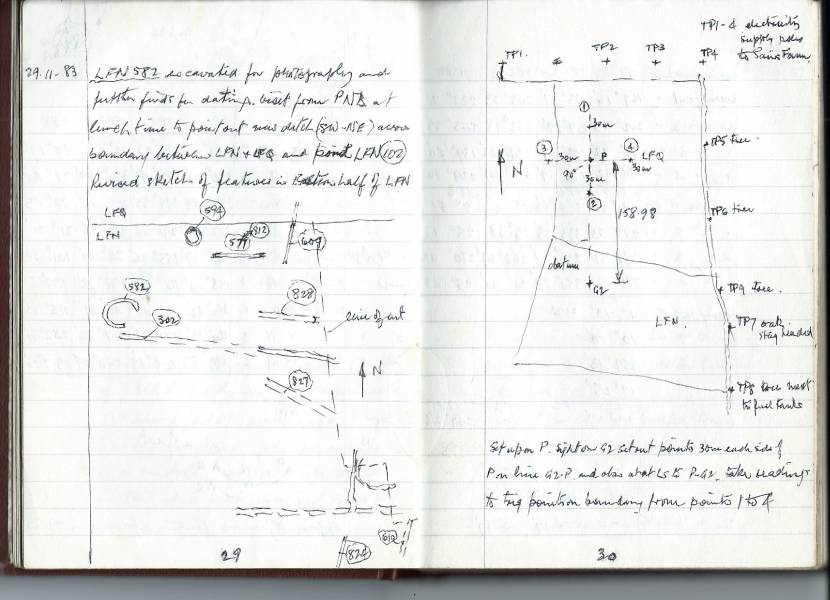 29.11-83
LFN 582 excavated for photography and
further finds for dating. Visit from PNB at
lunch time to point out new ditch (SW-NE) across
boundary between LFN + LFQ and LFN 102
Revised sketch of features in half of LFN
LFQ
LFN
594
579
812
609
582
302
828
line of cut
827
N
612
824
29
TP1-4 electricity
supply poles
to Sains Farm
TP1.
TP2
TP3
TP4
1
30m
3
30m
P
4
LFQ
30m
90°
30m
2
N
158.98
TP5 tree.
TP6 tree
datum
G2
TP9 tree.
LFN.
TP7 oak.
stag headed
TP8 tree next
to fuel tanks
Set up on P. sight on G2 set out points 30m each side of
P on line G2-P and also at rt Ls to P-G2. take readings
to trig points on boundary from points 1 to 4
30